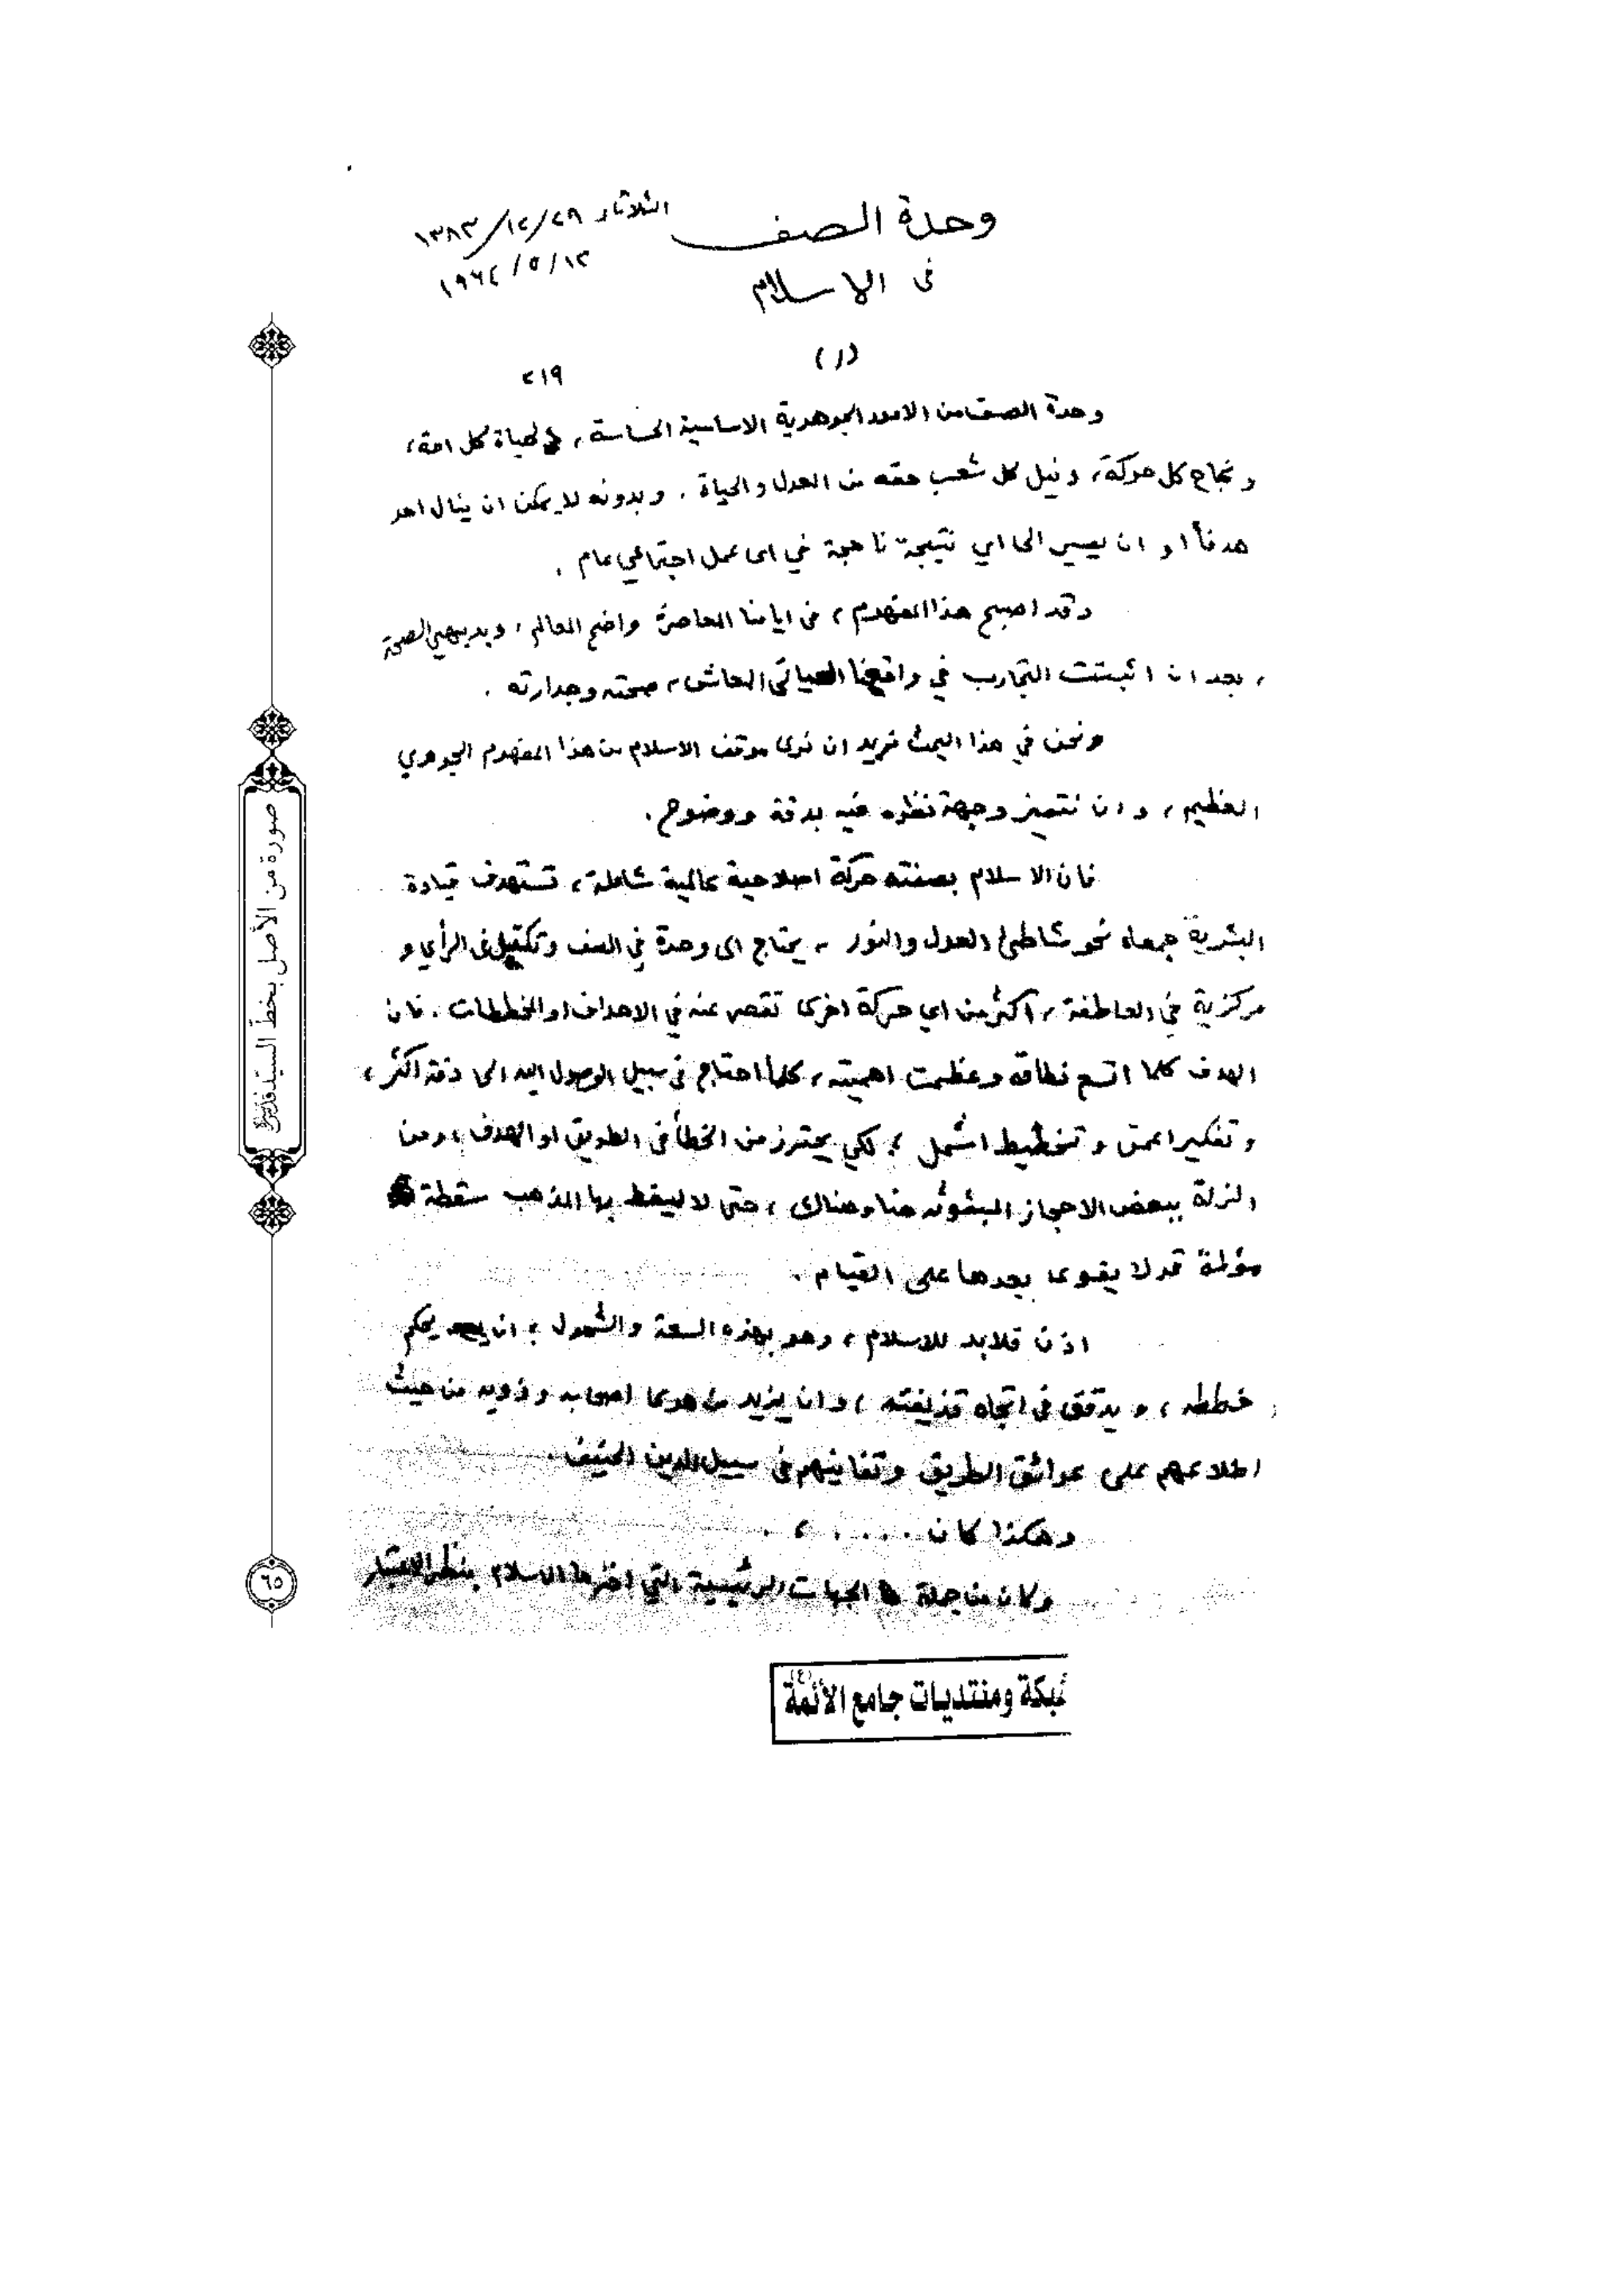 وحدة الصف
في الاسلام
الثلاثاء ٢٩/١٢/١٣٨٣
١٢/٥/١٩٦٤
(١)
٢١٩
وحدة الصف من الامور الجوهرية الاساسية الحساسة، لحياة كل امة،
و نجاح كل حركة، ونيل كل شعب حقه من العدل والحياة. وبدونه لا يمكن ان ينال احد
هدفاً او ان يصير الى اي نتيجة ناجحة في اي عمل اجتماعي عام.
وقد اصبح هذا المفهوم، في ايامنا المعاصرة واضح المعالم، وبديهي الصحة
، بعد ان اثبتت التجارب في واقعنا الحياتي المعاش، صحته وجدارته.
ونحن في هذا البحث نريد ان نرى موقف الاسلام من هذا المفهوم الجوهري
العظيم، و ان نتميز وجهة نظره فيه بدقة ووضوح.
فان الاسلام بصفته حركة اصلاحية عالمية شاملة، تستهدف قيادة
البشرية جمعاء نحو شاطئ العدل والنور، يحتاج الى وحدة في الصف وتكتيل في الرأي و
مركزية في العاطفة، اكثر من اي حركة اخرى تقصر عنه في الاهداف او المخططات. فان
الهدف كلما اتسع نطاقه وعظمت اهميته، كلما احتاج في سبيل الوصول اليه الى دقة اكثر،
و تفكير اعمق و تخطيط اشمل؛ لكي يحترز من الخطأ في الطريق او الهدف، ومن
الزلة ببعض الاحجار المبثوثه هنا وهناك، حتى لا ليسقط بها المذهب سقطة
مؤلمة قد لا يقوى بعدها على القيام.
اذن فلابد للاسلام، وهو بهذه السعة والشمول؛ ان يحكم
خططه، و يدقق في اتجاه قذيفته، وان يزيد من هدى اصحابه وذويه من حيث
اطلاعهم على عوائق الطريق وتفانيهم في سبيل الدين الحنيف.
وهكذا كان . . . . ، .
وكان من جملة الجهات الرئيسية التي اخذها الاسلام بنظر الاعتبار
صورة من الأصل بخطّ السيّد
٦٥
شبكة ومنتديات جامع الأئمة (ع)